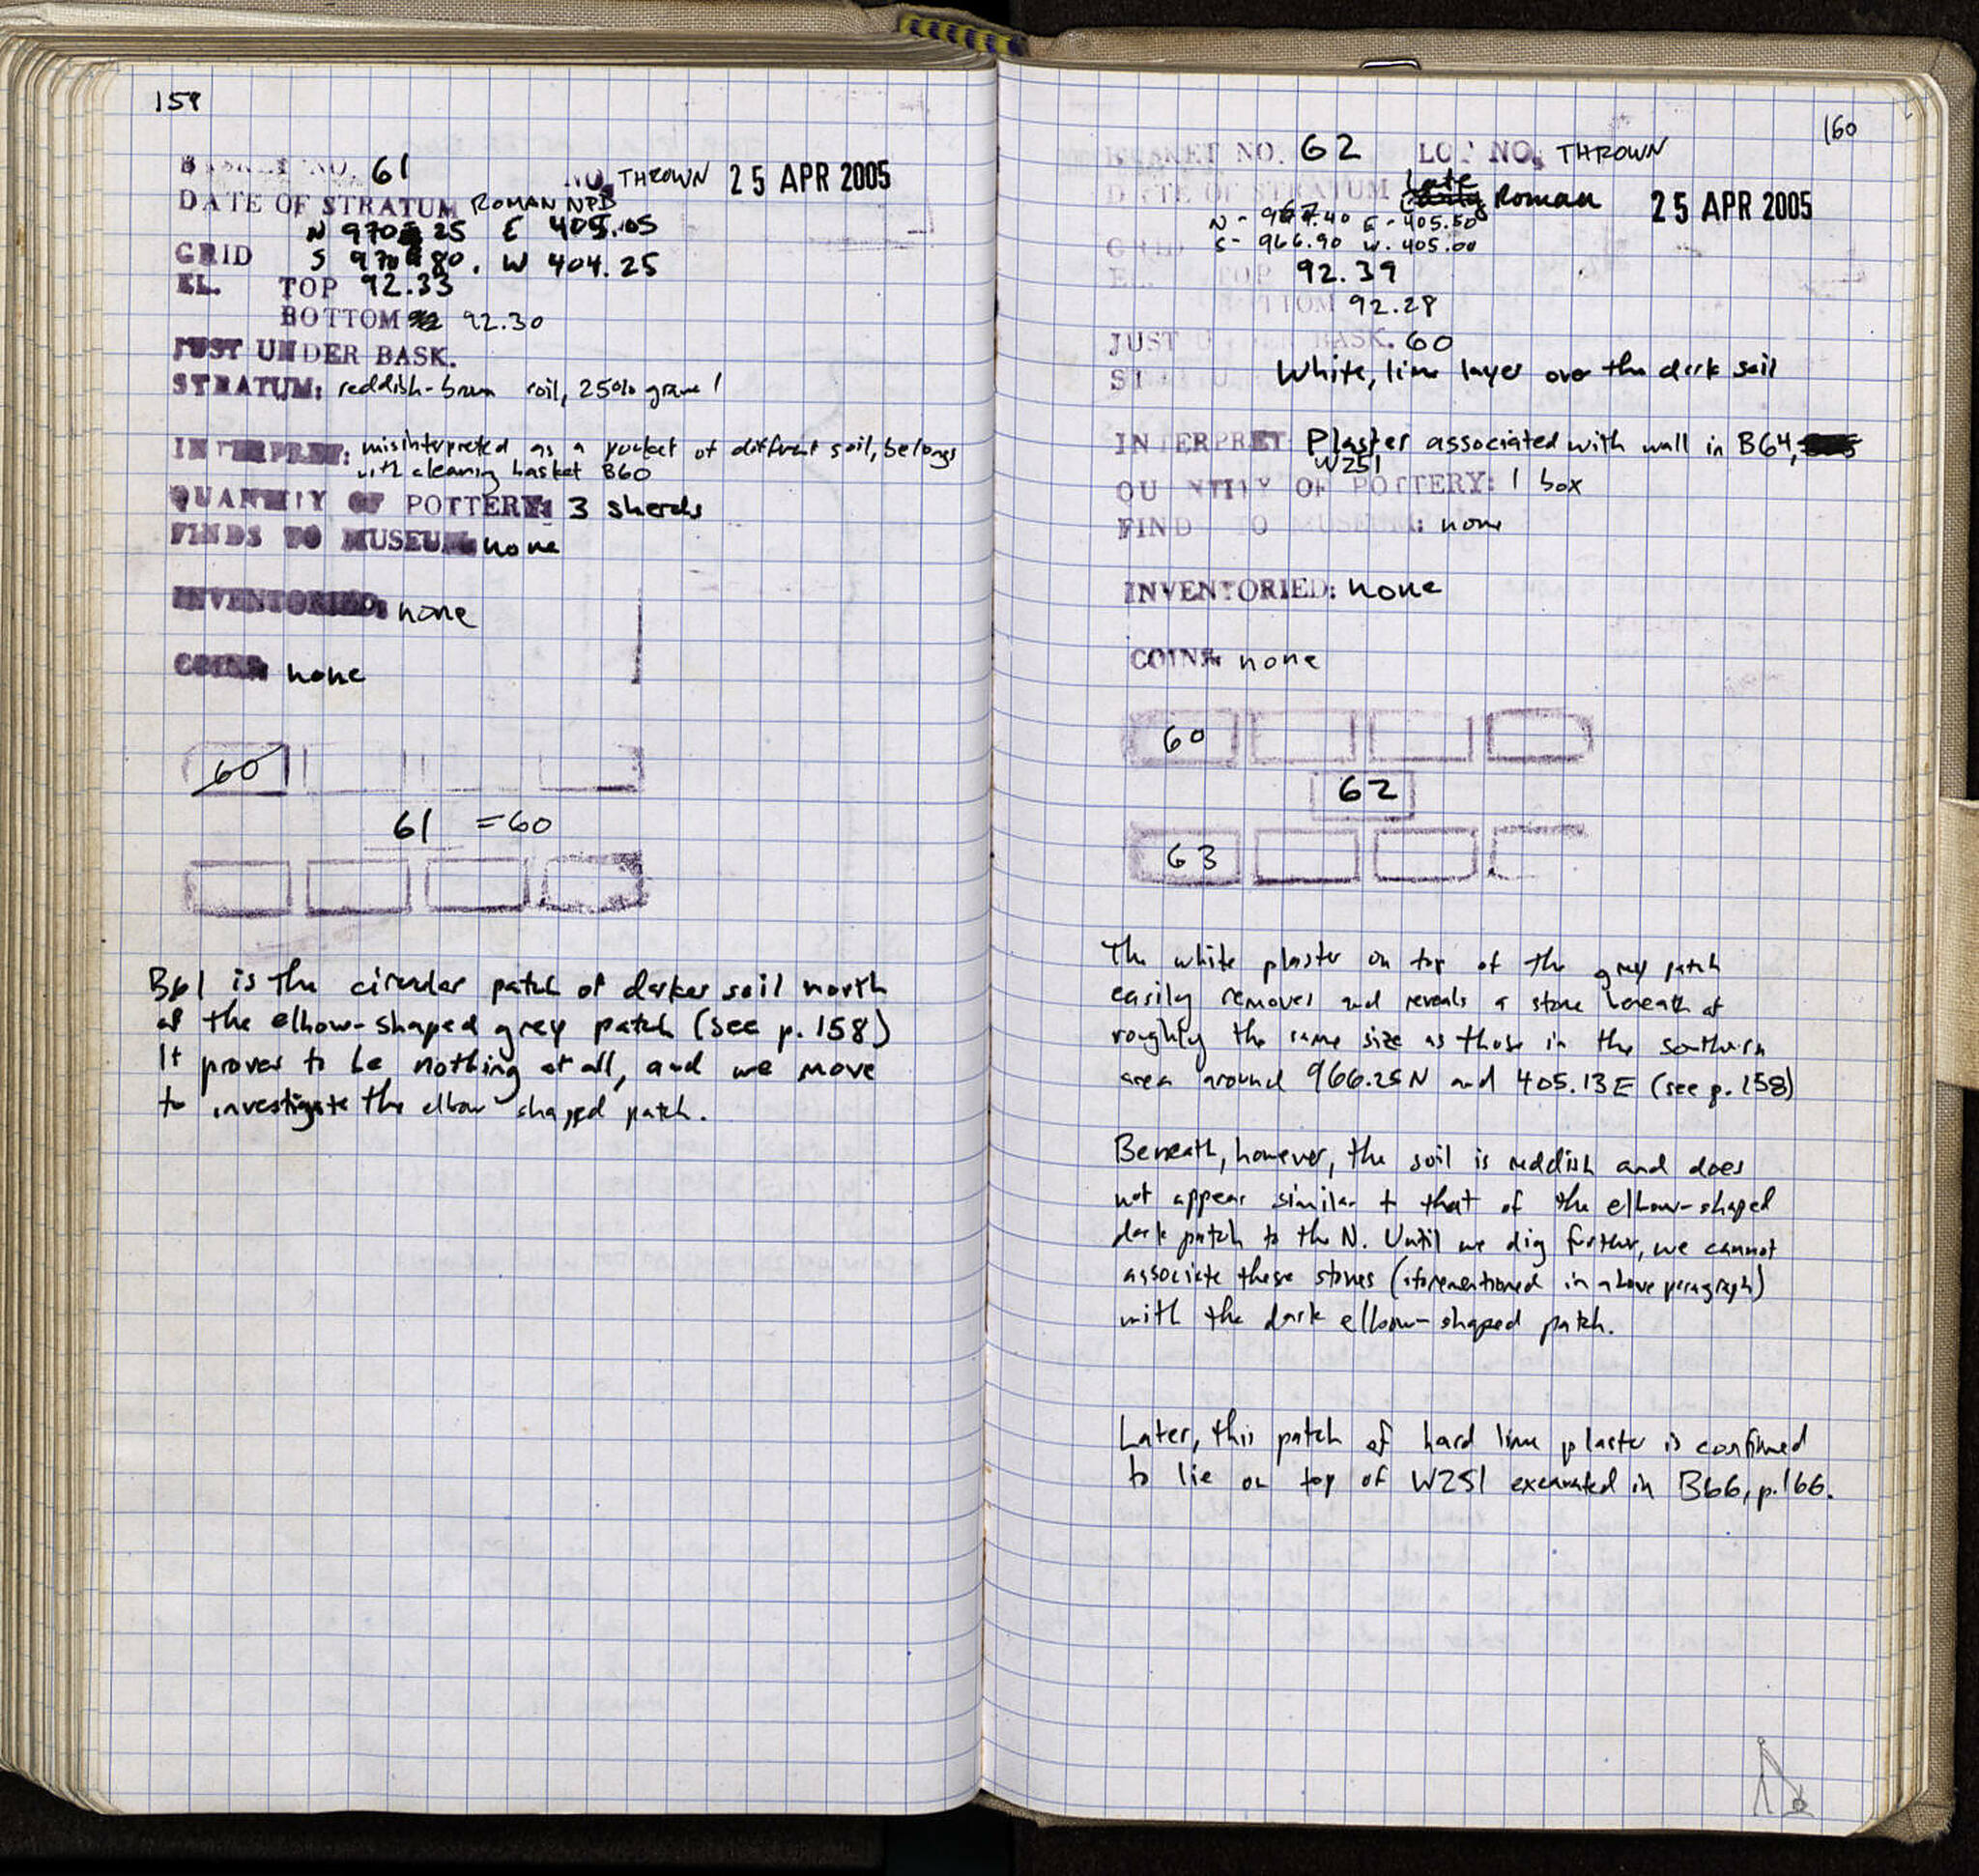 159
BASKET NO. 61 NO. THROWN 25 APR 2005
DATE OF STRATUM ROMAN NPD
N 970.25 E 405.05
GRID S 970.80. W 404.25
EL. TOP 92.33
BOTTOM 92.30
JUST UNDER BASK.
STRATUM: reddish-brown soil, 25% gravel
INTERPRET: misinterpreted as a pocket of different soil, belongs
with cleaning basket B60
QUANTITY OF POTTERY: 3 sherds
FINDS TO MUSEUM none
INVENTORIED: none
COINS: none
60
61 =60
B61 is the circular patch of darker soil north
of the elbow-shaped grey patch (see p. 158)
It proves to be nothing at all, and we move
to investigate the elbow shaped patch.
160
BASKET NO. 62 LOT NO. THROWN
DATE OF STRATUM Late Roman 25 APR 2005
N - 967.40 E - 405.50
GRID S - 966.90 W. 405.00
EL. TOP 92.39
BOTTOM 92.28
JUST UNDER BASK. 60
White, lime layer over the dark soil
INTERPRET Plaster associated with wall in B64,
W251
QUANTITY OF POTTERY: 1 box
FIND TO MUSEUM: none
INVENTORIED: none
COINS: none
60
62
63
The white plaster on top of the grey patch
easily removes and reveals a stone beneath of
roughly the same size as those in the southern
area around 966.25N and 405.13E (see p. 158)
Beneath, however, the soil is reddish and does
not appear similar to that of the elbow-shaped
dark patch to the N. Until we dig further, we cannot
associate these stones (aforementioned in above paragraph)
with the dark elbow-shaped patch.
Later, this patch of hard lime plaster is confirmed
to lie on top of W251 excavated in B66, p.166.